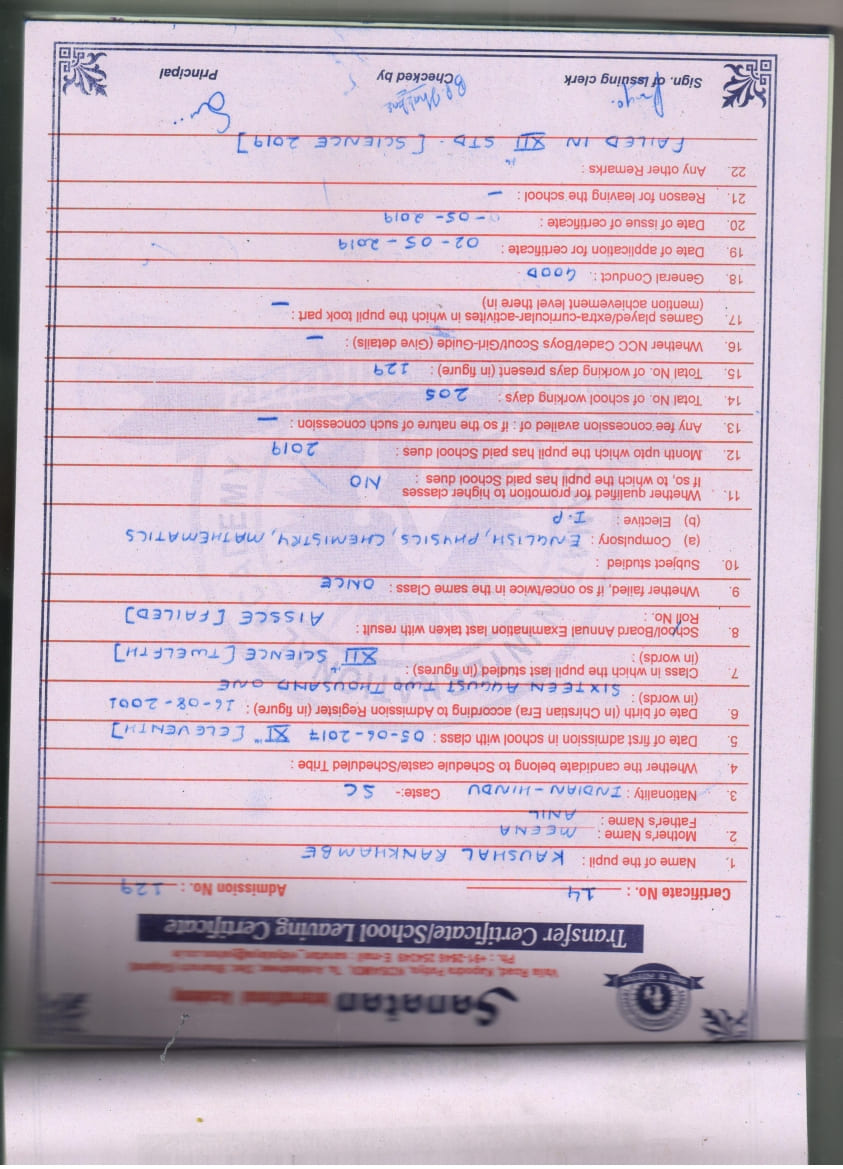 Sanatan International Academy
Valia Road, Kapodra Patiya, KOSAMDI, Ta. Ankleshwar, Dist. Bharuch (Gujarat)
Transfer Certificate/School Leaving Certificate
Certificate No. : 14 Admission No. : 129
1. Name of the pupil : KAUSHAL RANKHAMBE
2. Mother's Name : MEENA
Father's Name : ANIL
3. Nationality : INDIAN - HINDU Caste:- SC
4. Whether the candidate belong to Schedule caste/Scheduled Tribe :
5. Date of first admission in school with class : 05-06-2017 XIth [ELEVENTH]
6. Date of birth (In Chirstian Era) according to Admission Register (in figure) : 16-08-2001
(in words) : SIXTEEN AUGUST TWO THOUSAND ONE
7. Class in which the pupil last studied (in figures) : XIIth SCIENCE [TWELFTH]
(in words) :
8. School/Board Annual Examination last taken with result : AISSCE [FAILED]
Roll No. :
9. Whether failed, if so once/twice in the same Class : ONCE
10. Subject studied :
(a) Compulsory : ENGLISH, PHYSICS, CHEMISTRY, MATHEMATICS
(b) Elective : I.P
11. Whether qualified for promotion to higher classes
If so, to which the pupil has paid School dues : NO
12. Month upto which the pupil has paid School dues : 2019
13. Any fee concession availed of : if so the nature of such concession : —
14. Total No. of school working days : 205
15. Total No. of working days present (in figure) : 129
16. Whether NCC Cadet/Boys Scout/Girl-Guide (Give details) : —
17. Games played/extra-curricular-activites in which the pupil took part : —
(mention achievement level there in)
18. General Conduct : GOOD
19. Date of application for certificate : 02-05-2019
20. Date of issue of certificate : -05-2019
21. Reason for leaving the school : —
22. Any other Remarks :
FAILED IN XIIth STD. [SCIENCE 2019]
Sign. of issuing clerk Checked by Principal